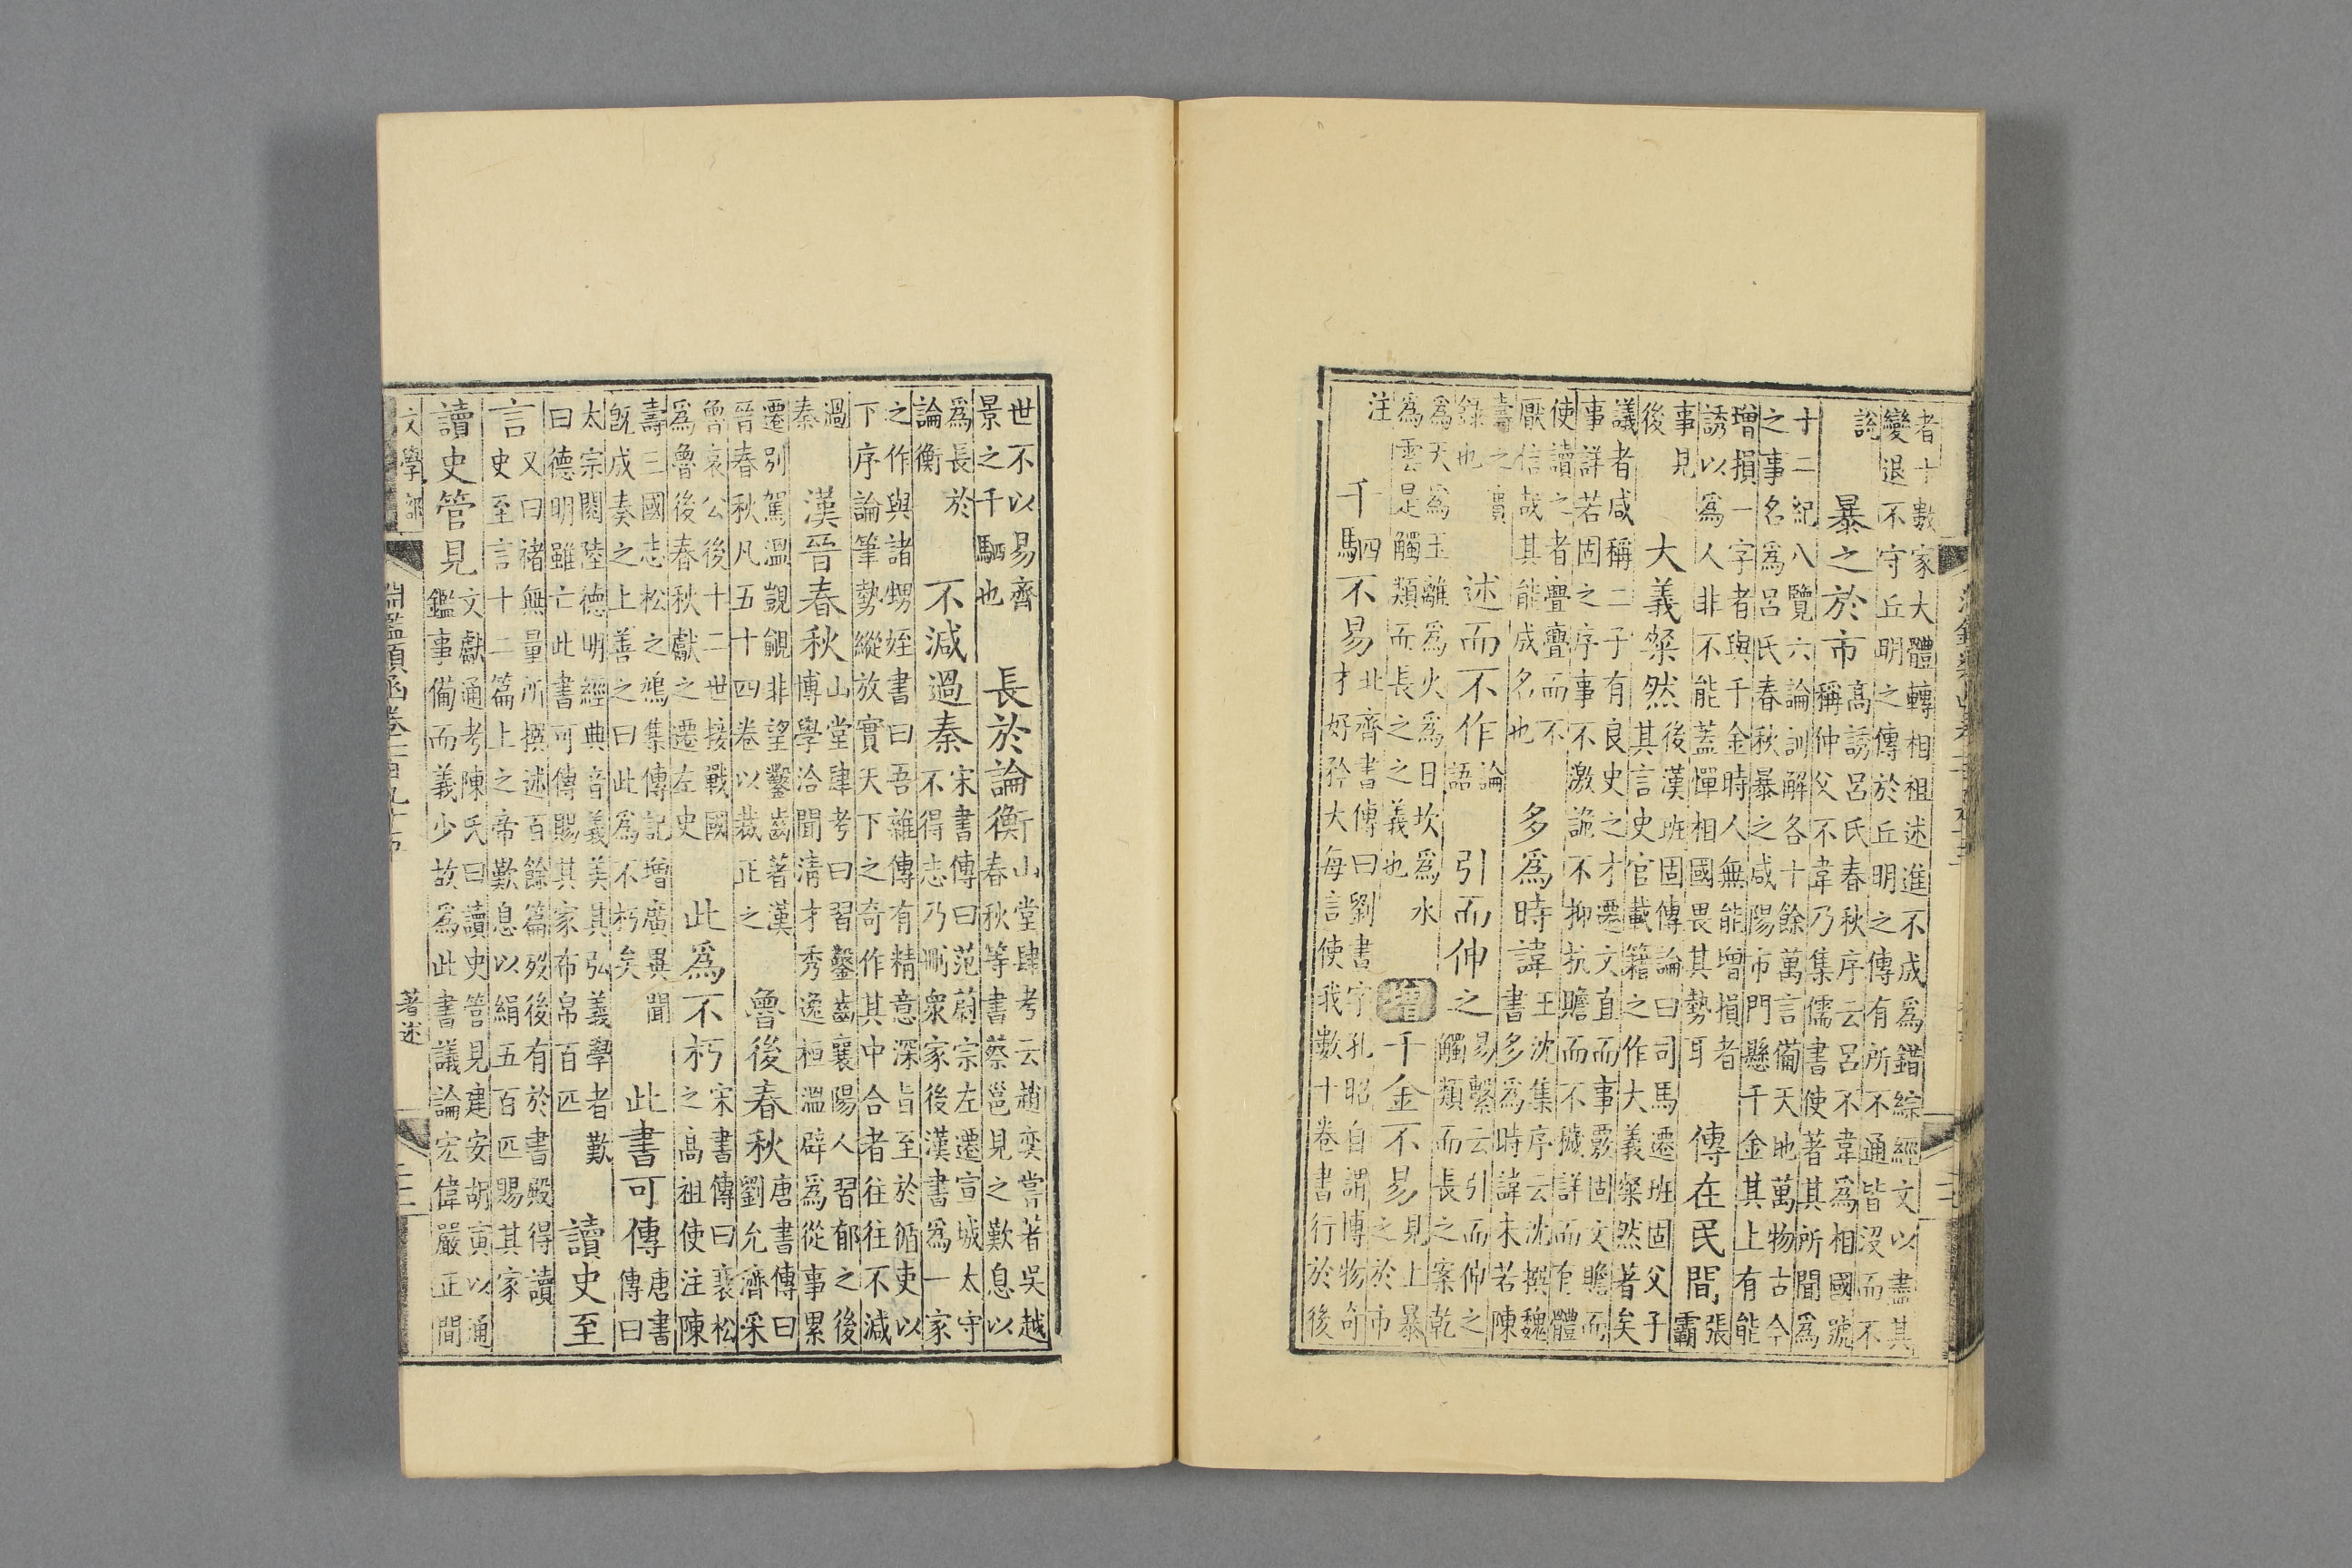 者十數家大體轉相祖述進不成爲錯綜經文以盡其
變退不守丘明之傳於丘明之傳有所不通皆沒而不
說
暴之於市
高誘呂氏春秋序云呂不韋爲相國號
稱仲父不韋乃集儒書使著其所聞爲
十二紀八覽六論訓解各十餘萬言備天地萬物古今
之事名爲呂氏春秋暴之咸陽市門懸千金其上有能
增損一字者與千金時人無能增損者
誘以爲人非不能蓋憚相國畏其勢耳
傳在民間
張
霸
事見
後
大義粲然
後漢班固傳論曰司馬遷班固父子
其言史官載籍之作大義粲然著矣
議者咸稱二子有良史之才遷文直而事覈固文贍而
事詳若固之序事不激詭不抑抗贍而不穢詳而有體
使讀之者亹亹而不
厭信哉其能成名也
多爲時諱
王沈集序云沈撰魏
書多爲時諱未若陳
壽之實
錄也
述而不作
論
語
引而伸之
易繫云引而伸之
觸類而長之案乾
爲天爲玉離爲火爲日坎爲水
爲雲是觸類而長之之義也
增
千金不易
見上暴
之於市
注
千駟不易
北齊書傳曰劉書字孔昭自謂博物奇
才好矜大每言使我數十卷書行於後
世不以易齊
景之千駟也
長於論衡
山堂肆考云趙奕嘗著吳越
春秋等書蔡邕見之歎息以
爲長於
論衡
不減過秦
宋書傳曰范蔚宗左遷宣城太守
不得志乃刪衆家後漢書爲一家
之作與諸甥姪書曰吾雜傳有精意深旨至於循吏以
下序論筆勢縱放實天下之奇作其中合者往往不減
過
秦
漢晉春秋
山堂肆考曰習鑿齒襄陽人習郁之後
博學洽聞淸才秀逸桓溫辟爲從事累
遷別駕溫覬覦非望鑿齒著漢
晉春秋凡五十四卷以裁正之
魯後春秋
唐書傳曰
劉允濟采
魯哀公後十二世接戰國
爲魯後春秋獻之遷左史
此爲不朽
宋書傳曰裴松
之高祖使注陳
壽三國志松之鳩集傳記增廣異聞
旣成奏之上善之曰此爲不朽矣
此書可傳
唐書
傳曰
太宗閱陸德明經典音義美其弘義學者歎
曰德明雖亡此書可傳賜其家布帛百匹
讀史至
言
又曰褚無量所撰述百餘篇歿後有於書殿得讀
史至言十二篇上之帝歎息以絹五百匹賜其家
讀史管見
文獻通考陳氏曰讀史管見建安胡寅以通
鑑事備而義少故爲此書議論宏偉嚴正間
文學部
淵鑑類函卷一百九十六
著述